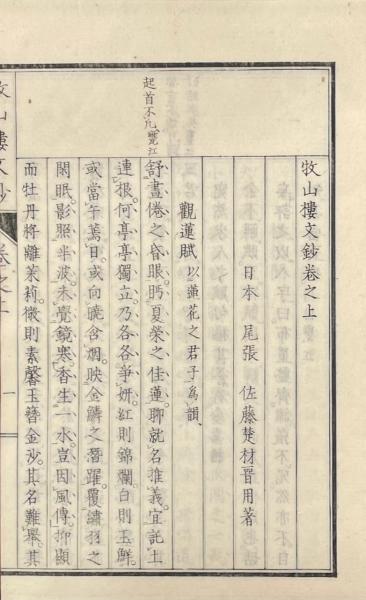 牧山樓文鈔卷之上
日本 尾張 佐藤楚材晋用著
觀蓮賦 以蓮花之君子為韻
起首不凡 甕江
舒晝倦之昏眼。眄夏榮之佳蓮。聊就名推義。宜託土
連根。何亭亭獨立。乃各各爭妍。紅則錦爛。白則玉鮮。
或當午蔫日。或向曉含烟。映金鱗之潛躍。覆繡羽之
閑眠。影照半波。未覺鏡寒。香生一水。豈因風傳。抑顯
而牡丹將離茉莉。微則素馨玉簪金沙。其名難舉。其
牧山樓文鈔 卷之上 一